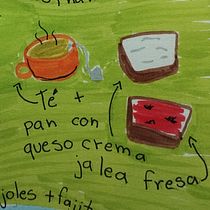 Té +
pan con
queso crema
jalea fresa
joles + fajit